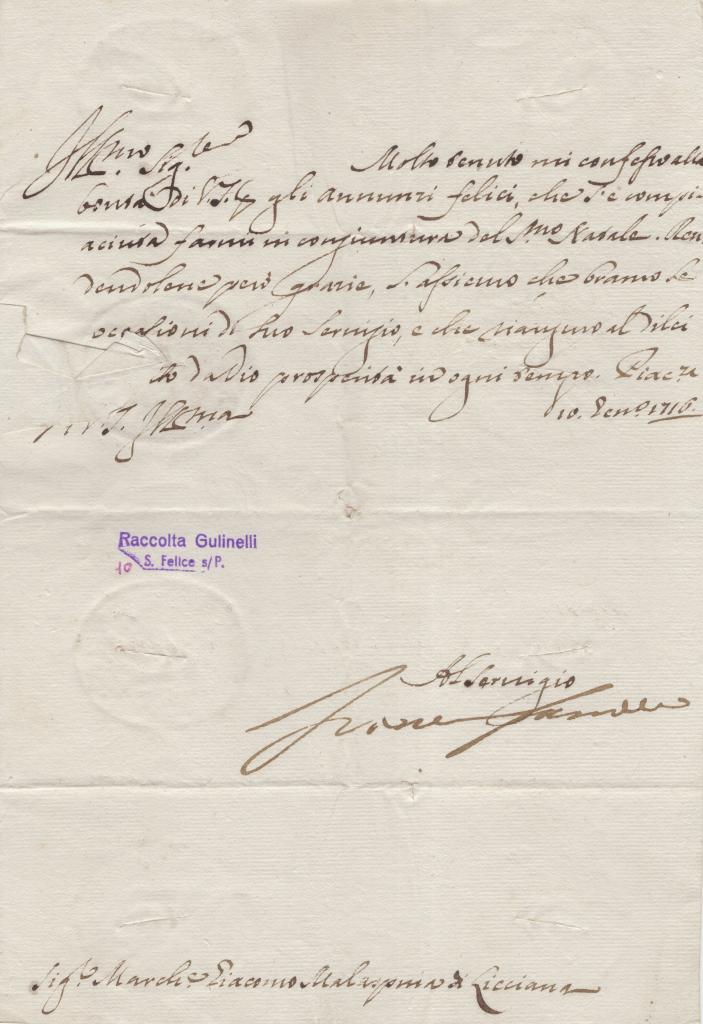 Ill.mo Sig.re
Molto tenuto mi confesso alla
bontà di V.S. gli annunzi felici, che s'è compi-
aciuta farmi in congiuntura del S.mo Natale. Ren
dendolene però grazie, l'assicuro che bramo le
occasioni di suo servigio, e che
da Dio prosperità in ogni tempo. Piac.za
10. Genn.o 1716.
V.S. Ill.ma
Raccolta Gulinelli
S. Felice s/P.
10
Al servigio
Sig.re March.e Giacomo Malaspina di Licciana